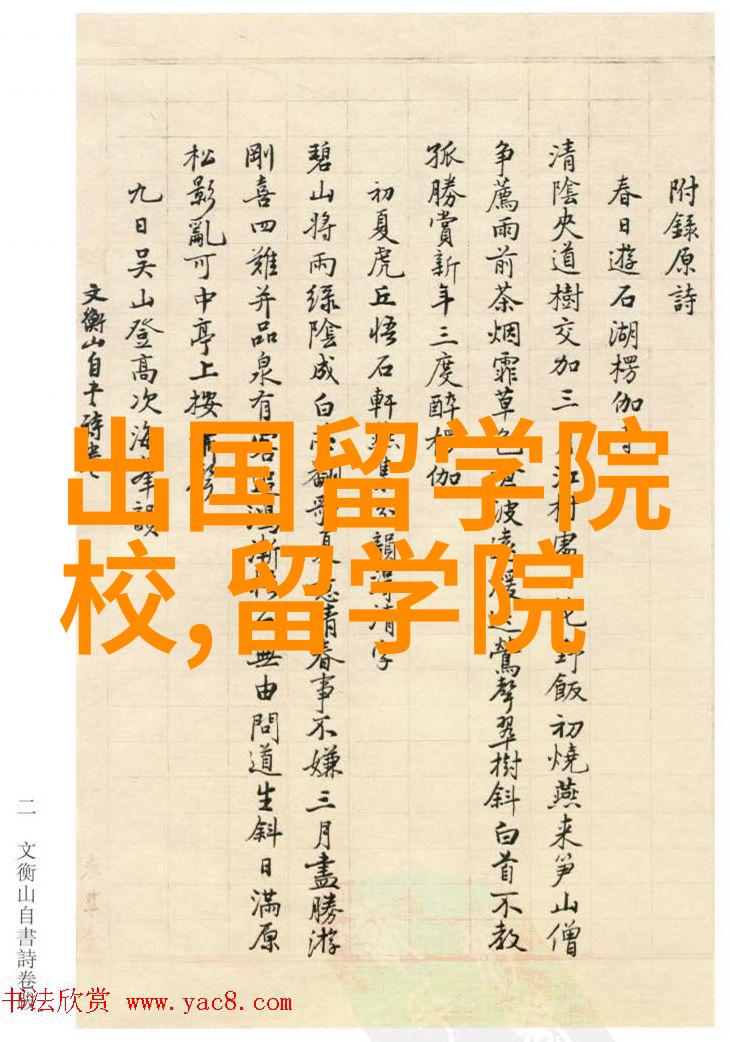 附錄原詩
春日遊石湖楞伽
清陰央道樹交加三江村野飯初燒燕来笋山僧
争薦雨前茶烟霏草色波遠暖鶯聲翠樹斜白首不教
孤勝賞新年三度醉楞伽
初夏虎丘悟石軒集韻得清字
碧山將雨緑陰成白翻哥夏春事不嫌三月盡勝游
剛喜四難并品泉有客鴻漸無由問道生斜日滿原
松影亂可中亭上按
九日吴山登高次海峯韻
文衡山自
二 文衡山自書詩卷跋
出国留学院
校,留学院
书法欣赏 www.yac8.com